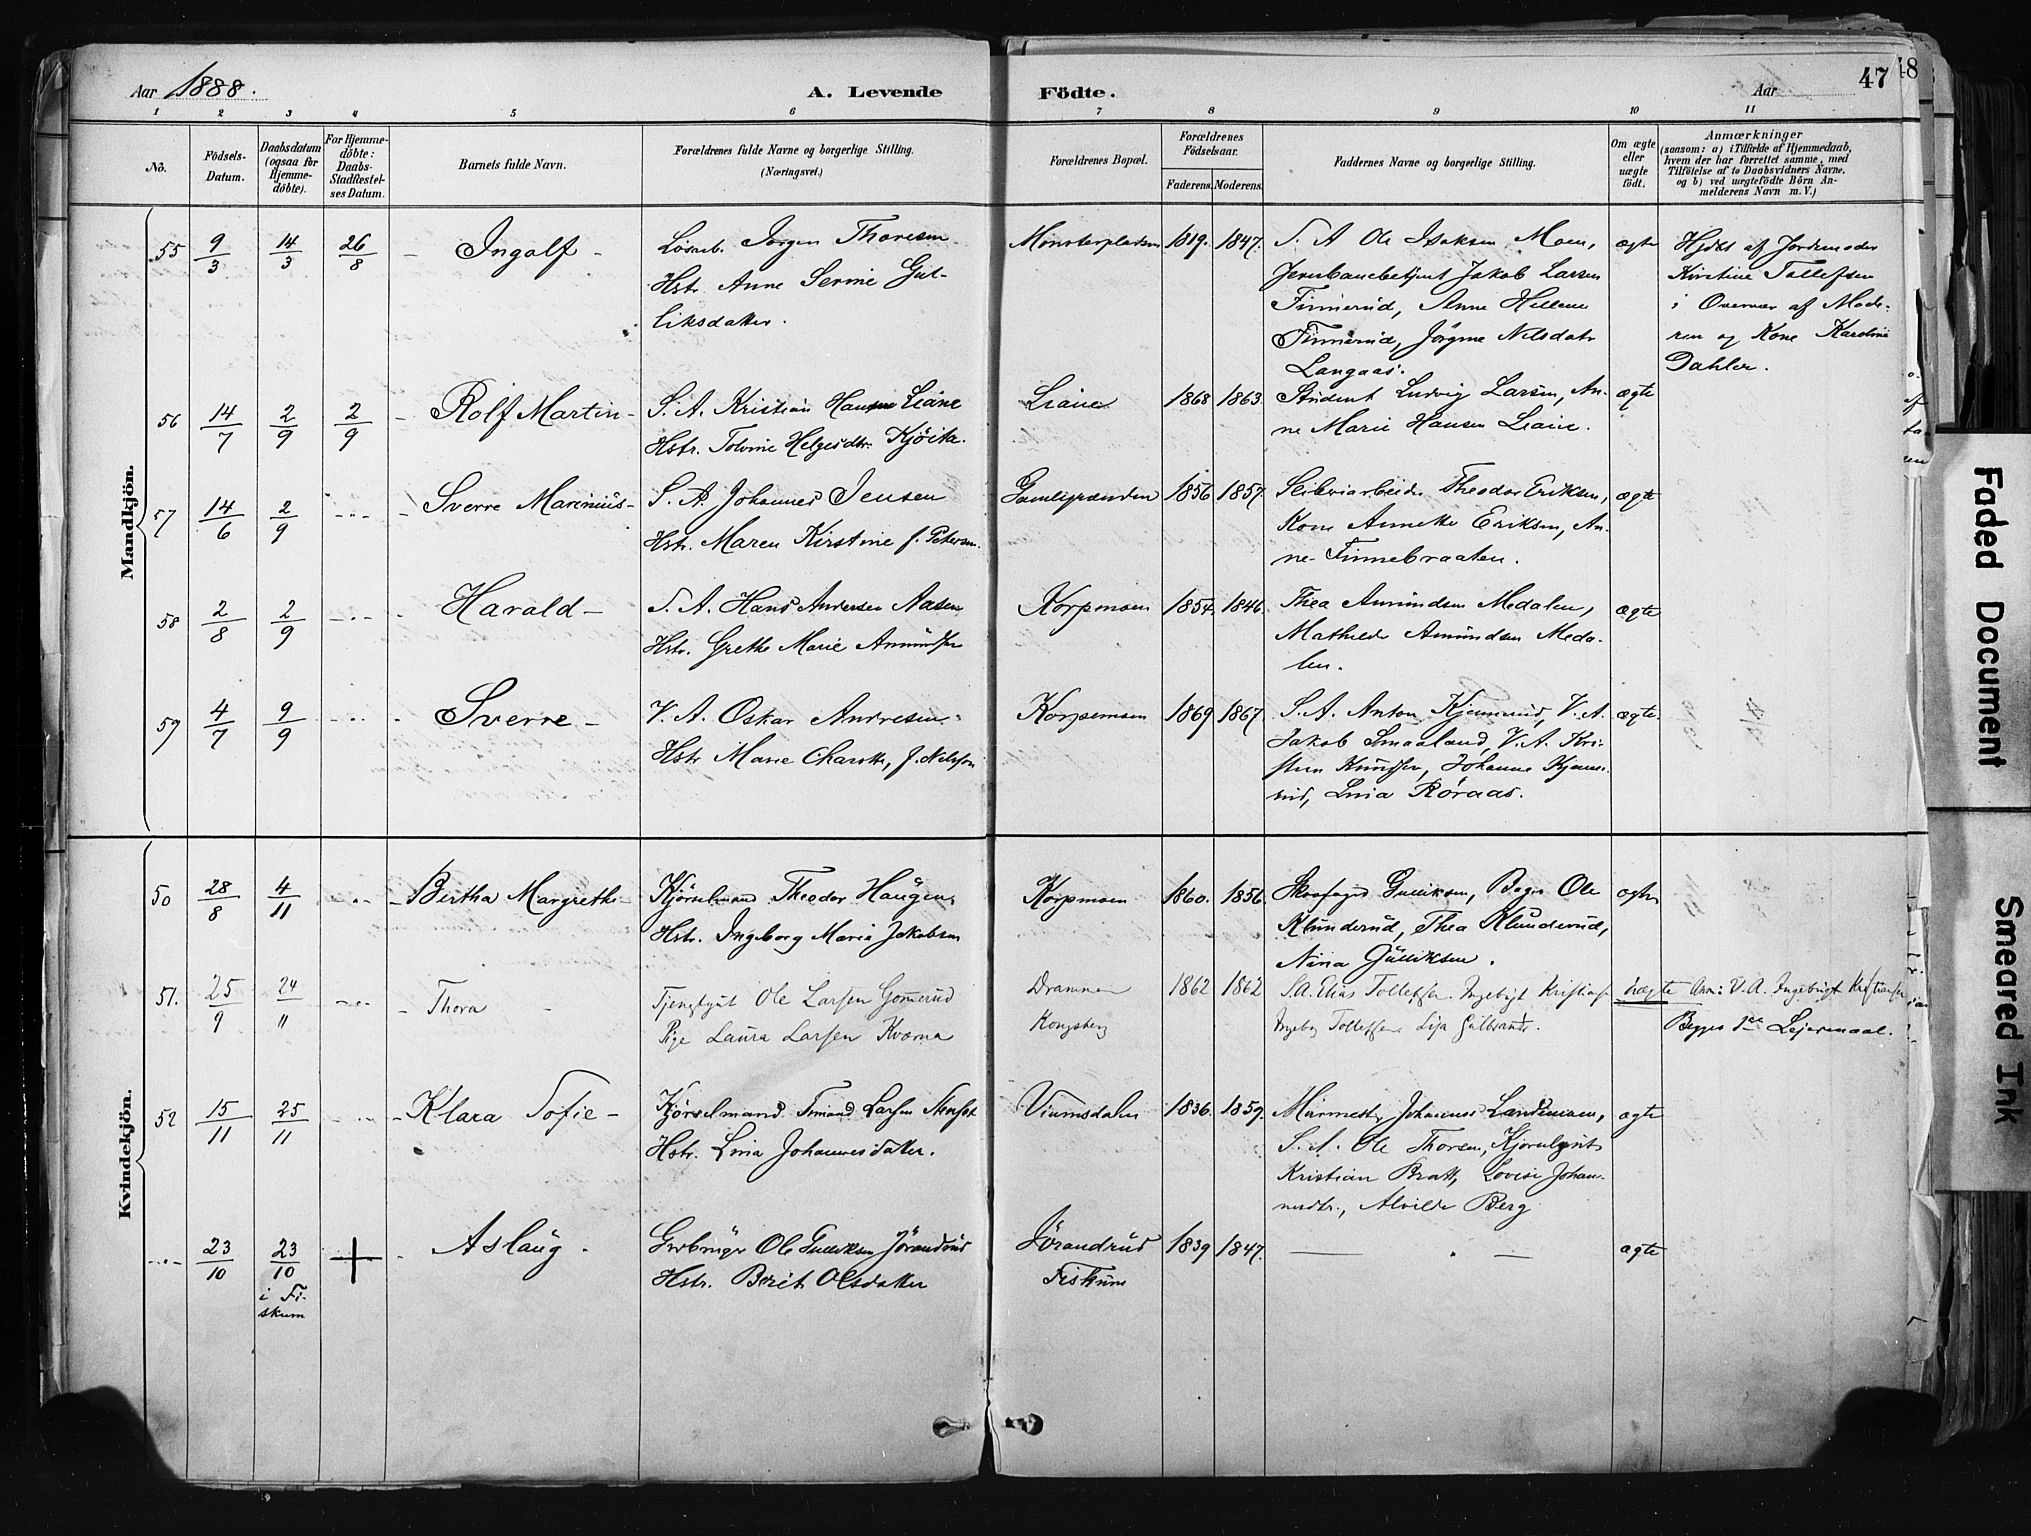 Aar 1888.
A. Levende
Födte.
Aar
47
48
1 2 3 4 5 6 7 8 9 10 11
No.
Födsels-
Datum.
Daabsdatum
(ogsaa for
Hjemme-
döbte).
For Hjemme-
döbte:
Daabs-
Stadfæstel-
ses Datum.
Barnets fulde Navn.
Forældrenes fulde Navne og borgerlige Stilling.
(Næringsvei.)
Forældrenes Bopæl.
Forældrenes
Födselsaar.
Faderens. Moderens.
Faddernes Navne og borgerlige Stilling.
Om ægte
eller
uægte
födt.
Anmærkninger
(saasom: a) i Tilfælde af Hjemmedaab,
hvem der har forrettet samme, med
Tilföielse af to Daabsvidners Navne,
og b) ved uægtefödte Börn An-
melderens Navn m. V.)
Mandkjön.
55 9/3 14/3 26/8 - Ingolf -
Jorgen Thoresen
Hstr. Anne Serine Gul-
liksdatter.
1819. 1847.
S. A Ole Isaksen Moen,
Jernbanebetjent Jakob Larsen
Finnerud, Anne Hellene
Finnerud, Jörgine Nilsdatr
Langaas.
ægte
Hjdbt af Jordemoder
Kirstine Tollefsen
i Overvær af Mode-
ren og Kone Karoline
Dahler.
56 14/7 2/9 2/9 - Rolf Martin -
S. A. Kristian Hansen Liane
Hstr. Tolvine Helgesdtr. Kjöita.
Liane 1868 1863.
Student Ludvig Larsen, An-
ne Marie Hansen Liane.
ægte
57 14/6 2/9 -..- - Sverre Marinius -
S. A. Johannes Jensen
Hstr. Maren Kirstine f. Petersen.
Gamlegrænden 1856 1857.
Sliberiarbeider Theodor Eriksen,
Kone Annette Eriksen, An-
ne Finnebraaten.
ægte
58 2/8 2/9 -..- - Harald -
S. A. Hans Andersen Aasen
Hstr. Grethe Marie Amundsen
Korpemoen 1854. 1846.
Thea Amundsen Medalen,
Mathilde Amundsen Meda-
len.
ægte
59 4/7 9/9 -..- - Sverre -
V. A. Oskar Andresen
Hstr Marie Charotte, f. Nilsson
Korpemoen 1869 1867.
S. A. Anton Kjemerud, V. A.
Jakob Smaaland, V. A. Kri-
sten Knudsen, Johanne Kjeme-
rud, Lina Röraas.
ægte.
Kvindekjön.
50 28/8 4/11 -..- - Bertha Margrethe -
Kjörselmand Theodor Haugen,
Hstr. Ingeborg Marie Jakobsen
Korpmoen 1860. 1856.
Skovfoged Gulliksen, Bager Ole
Klunderud, Thea Klunderud,
Nina Gulliksen.
ægte
51. 25/9 24/11 -..- - Thora -
Tjenestgut Ole Larsen Gomerud
Pige Laura Larsen Kværna
Drammen
Kongsberg
1862 1862
S.A. Elias Tollefsen. Ingebrigt Kristians.
Ingebg Tollefsen Lisa Gulbrands.
uægte
Anm: V. A. Ingebrigt Kristiansen
Begges 1ste Lejermaal.
52 15/11 25/11 -..- - Klara Sofie -
Kjörselmand
Hstr. Lina Johannesdatter.
Viumsdalen 1836. 1859.
Murmester Johannes Landsmann,
S. A. Ole Thorsen,
Kristian Bratt, Lovise Johan-
nesdtr., Alvilde Berg
ægte
-..- 23/10 23/10 i Fi-
skum + - Aslaug.
Grdbruger Ole Gulliksen Jörandrud
Hstr. Berit Olsdatter
Jörandrud
Fiskum
1839 1847.
ægte
Faded Document
Smeared Ink